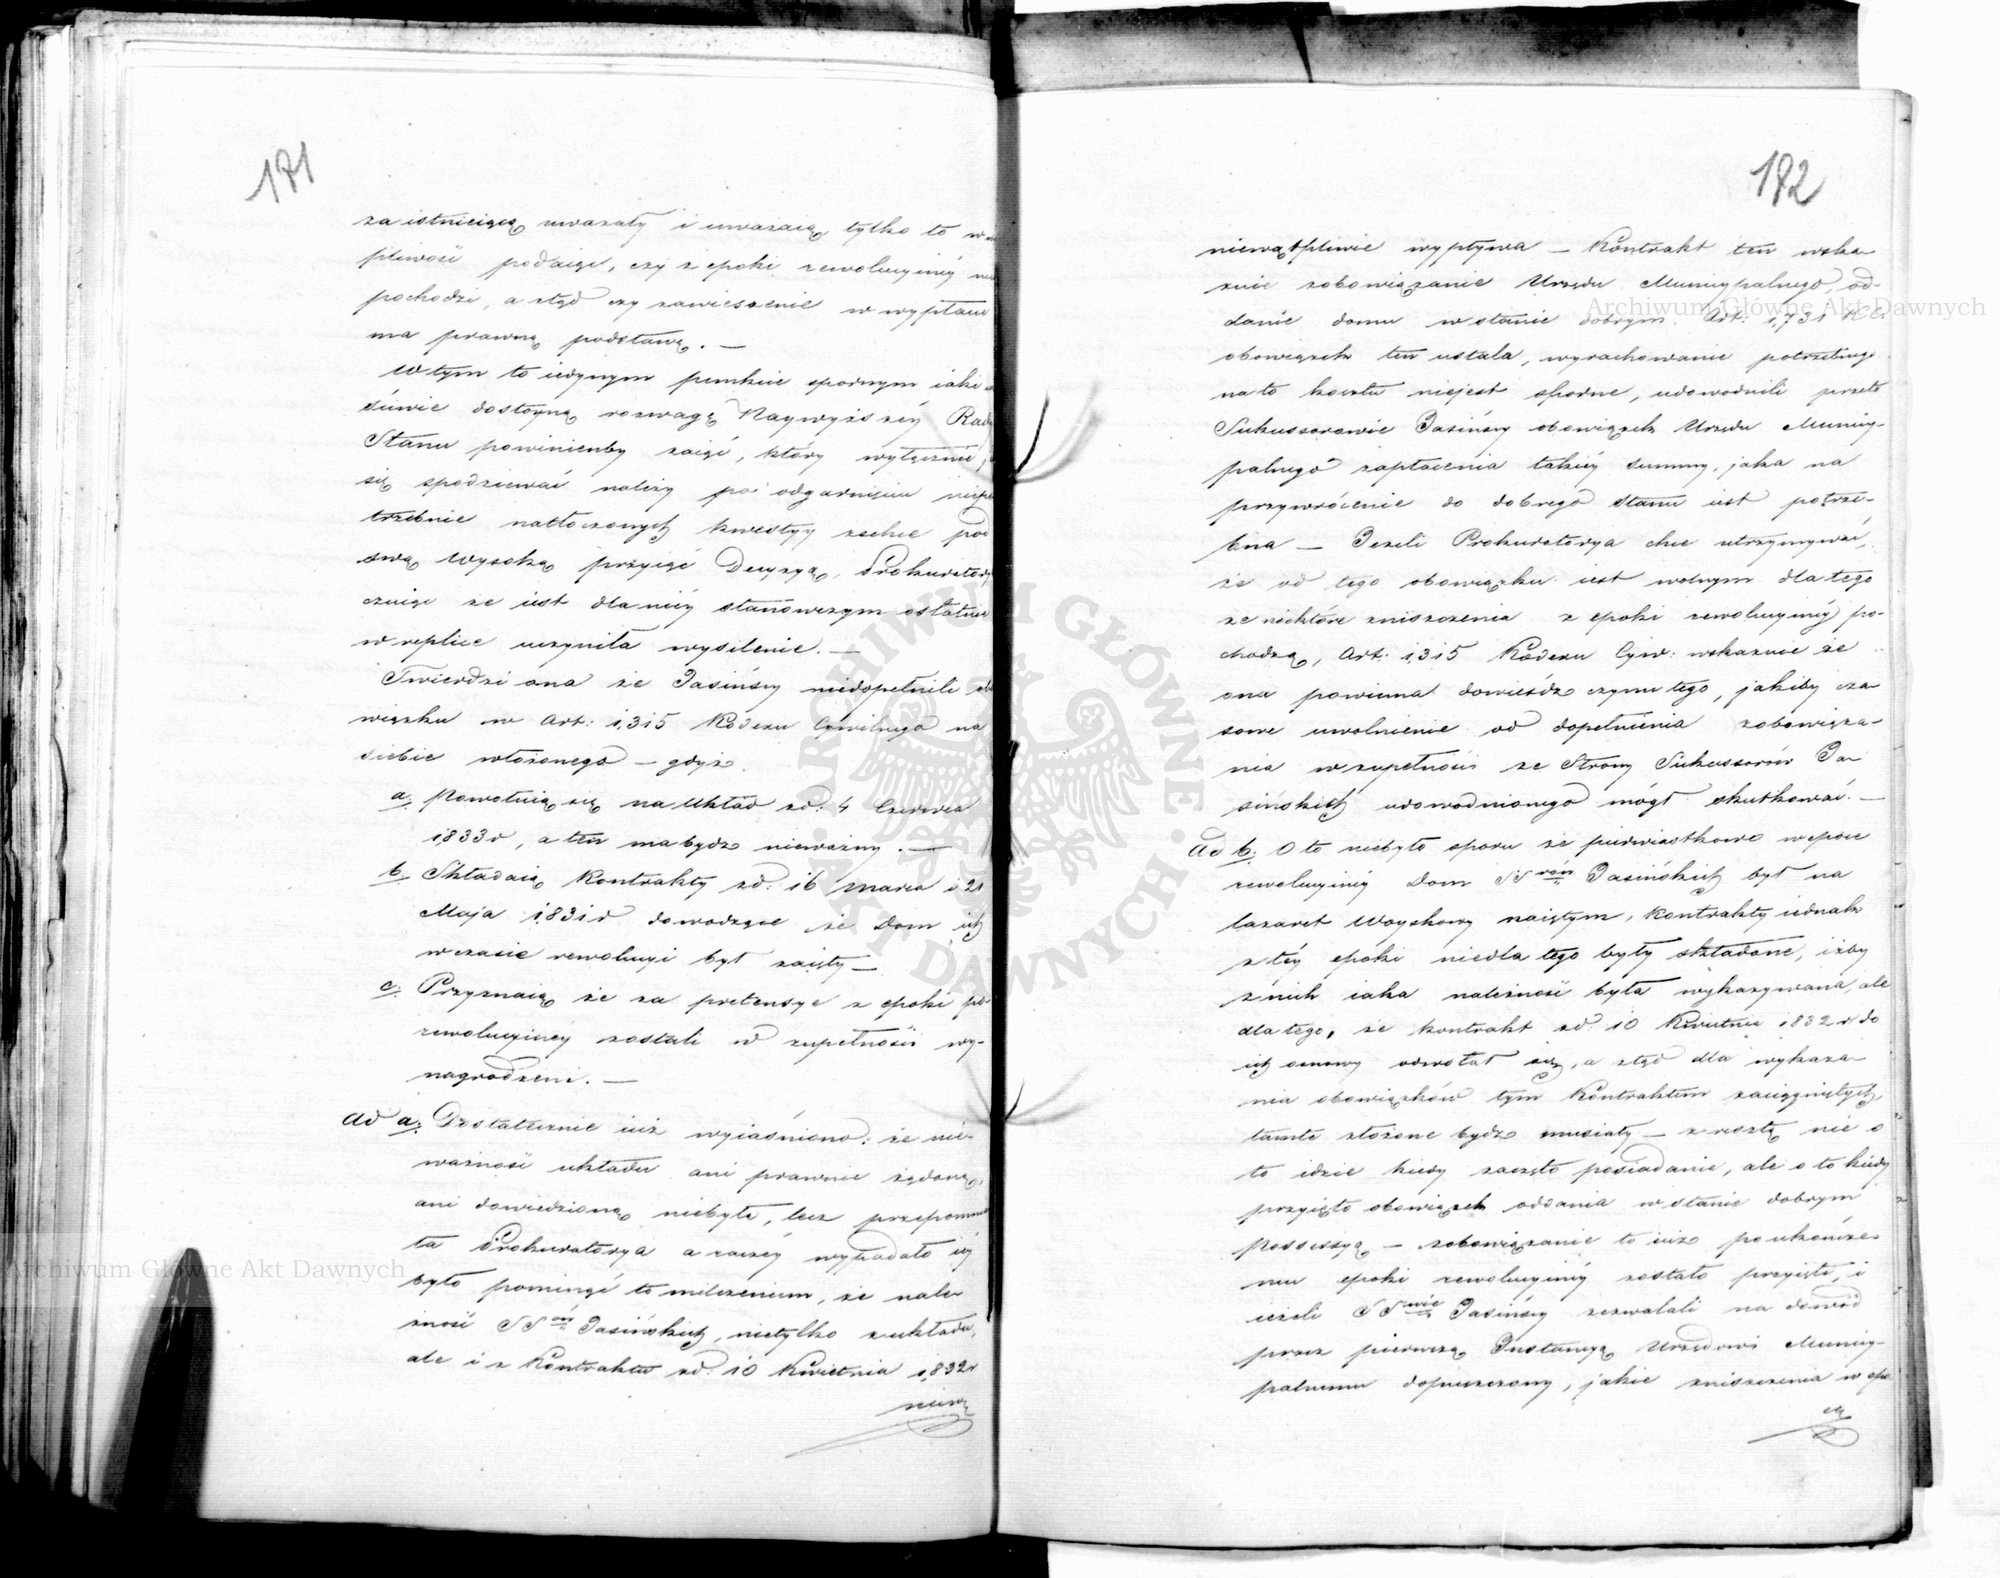 171
za istnieiącą uważały i uważaią tylko to w
pliwość podaiąc, czy z epoki rewolucyinéy
pochodzi, a ztąd czy zawieszenie w wypłacie
ma prawną podstawę. —
W tym to iedynym punkcie spornym iaki
dostoyną rozwagę Naywyższéy Rady
Stanu powinienby zaiąć, który wyłącznie,
się spodziewać należy po odgarnieniu niepo
trzebnie natłoczonych kwestyy zechce pod
swą Wysoką przyiąć Decyzyą, Prokuratorya
czuiąc że iest dla niéy stanowczym ostatnie
w replice uczyniła wysilenie. —
Twierdzi ona że Jasińscy niedopełnili obo
wiązku w Art: 1,315 Kodexu Cywilnego na
siebie włożonego — gdyż
a. Powołuią się na Układ zd: 4 Czerwca
1,833 r, a ten ma bydź nieważny. —
b. Składaią Kontrakty zd: 16 Marca i 21
Maja 1,831 r dowodzące że Dom ich
w czasie rewolucyi był zaięty —
c. Przyznaią że za pretensye z epoki po
rewolucyiney zostali w zupełności wy-
nagrodzeni. —
Ad a. Dostatecznie iuż wyiaśniono: że nie-
ważność układu ani prawnie żądaną,
ani dowiedzioną niebyła, lecz przepomnia
ła Prokuratorya a raczéy wypadało iéy
było pominąć to milczeniem, że nale-
żność SS ów Jasińskich, nietylko z układu,
ale i z Kontraktu zd: 10 Kwietnia 1,832 r
niewą
182
niewątpliwie wypływa — Kontrakt ten wska-
zuie zobowiązanie Urzędu Municypalnego, od-
danie domu w stanie dobrym. Art: 1,731 K C
obowiązek ten ustala, wyrachowanie potrzebnego
na to kosztu niejest sporne, udowodnili przeto
Sukcessorowie Jasińscy obowiązek Urzędu Municy-
palnego zapłacenia takiéy summy, jaka na
przywrócenie do dobrego stanu iest potrze-
bna — Jeżeli Prokuratorya chce utrzymywać,
że od tego obowiązku iest wolnym dla tego
że niektóre zniszczenia z epoki rewolucyinéy po-
chodzą, Art: 1,315 Kodexu Cyw: wskazuie że
ona powinna dowieśdź czynu tego, jakiby cza-
sowe uwolnienie od dopełnienia zobowiąza-
nia w zupełności ze Strony Sukcessorów Ja-
sińskich udowodnionego mógł skutkować. —
Ad b. O to niebyło sporu że pierwiastkowo w epoce
rewolucyinéy Dom SS rów Jasińskich był na
lazaret Woyskowy zaiętym, Kontrakty iednak
z téy epoki niedla tego były składane, iżby
z nich iaka należność była wykazywana, ale
dla tego, że kontrakt zd: 10 Kwietnia 1832 r do
ich osnowy odwołał się, a ztąd dla wykaza-
nia obowiązków tym Kontraktem zaciągniętych,
tamte złożone bydź musiały — zresztą nie o
to idzie kiedy zaczęto posiadanie, ale o to kiedy
przyięto obowiązek oddania w stanie dobrym
Possessyą — zobowiązanie to iuż po ukończe-
niu epoki rewolucyinéy zostało przyięte, i
ieżeli SS wie Jasińscy zezwalali na dowód
przez pierwszą Instancyą Urzędowi Municy-
palnemu dopuszczony, jakie zniszczenia w epo
ce
Archiwum Główne Akt Dawnych
Archiwum Główne Akt Dawnych
ARCHIWUM GŁÓWNE AKT DAWNYCH